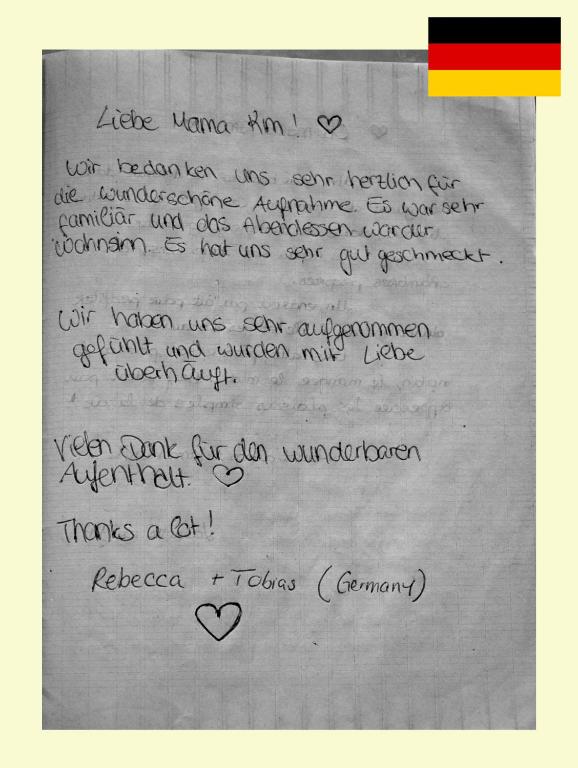 Liebe Mama Km! ♡
Wir bedanken uns sehr herzlich für
die wunderschöne Aufnahme. Es war sehr
familiär und das Abendessen war der
Wahnsinn. Es hat uns sehr gut geschmeckt.
Wir haben uns sehr aufgenommen
gefühlt und wurden mit Liebe
überhäuft.
Vielen Dank für den wunderbaren
Aufenthalt. ♡
Thanks a lot!
Rebecca + Tobias (Germany)
♡